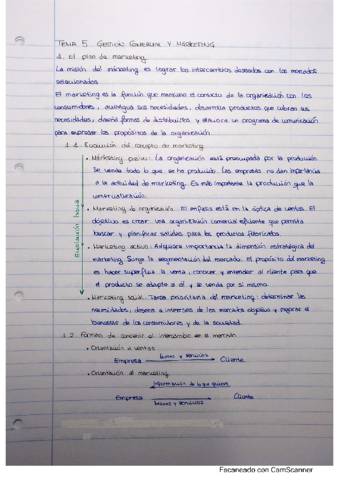 TEMA 5. GESTIÓN COMERCIAL Y MARKETING
1. el plan de marketing
La misión del márketing es lograr los intercambios deseados con los mercados
seleccionados.
El marketing es la función que mantiene el contacto de la organización con los
consumidores, averigua sus necesidades, desarrolla productos que cubran sus
necesidades, diseña formas de distribuirlos y elabora un programa de comunicación
para expresar los propósitos de la organización.
1.1. Evolución del concepto de marketing
• Márketing pasivo: La organización está preocupada por la producción.
Se vende todo lo que se ha producido. Las empresas no dan importancia
a la actividad de marketing. Es más importante la producción que la
comercialización.
• Marketing de organización: El énfasis está en la óptica de ventas. El
objetivo es crear una organización comercial eficiente que permita
buscar y planificar salidas para los productos fabricados.
• Marketing activo: Adquiere importancia la dimensión estratégica del
marketing. Surge la segmentación del mercado. El propósito del marketing
es hacer superflua la venta, conocer y entender al cliente para que
el producto se adapte a él y se venda por sí mismo.
• Marketing social: Tarea prioritaria del marketing: determinar las
necesidades, deseos e intereses de los mercados objetivo y mejorar el
bienestar de los consumidores y de la sociedad.
Evolución hacia
1.2. Formas de concebir el intercambio en el mercado
• Orientación a ventas
Empresa bienes y servicios Cliente
• Orientación al marketing
información de lo que quieren
Empresa bienes y servicios Cliente
Escaneado con CamScanner